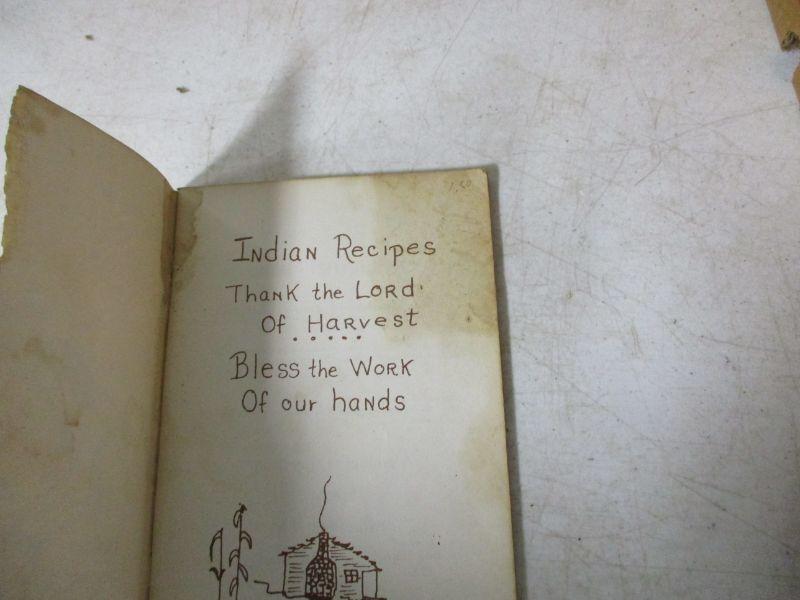 1.50
Indian Recipes
Thank the Lord
Of Harvest
.....
Bless the Work
Of our hands